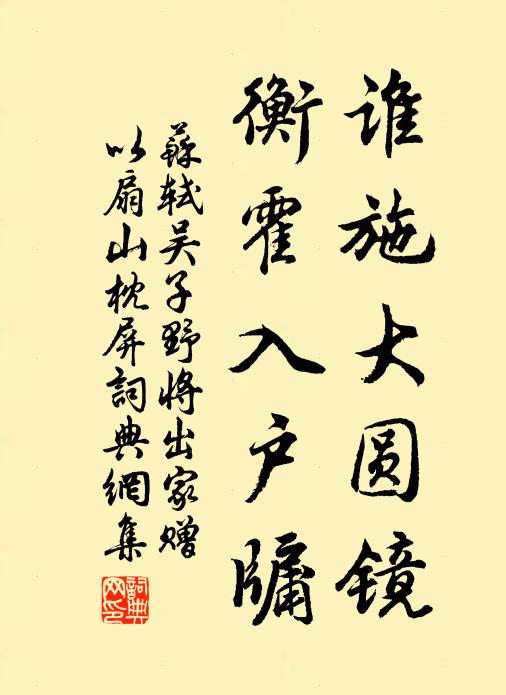 谁施大圆镜
衡霍入户牖
苏轼吴子野将出家赠
以扇山枕屏詞典網集
詞典网印